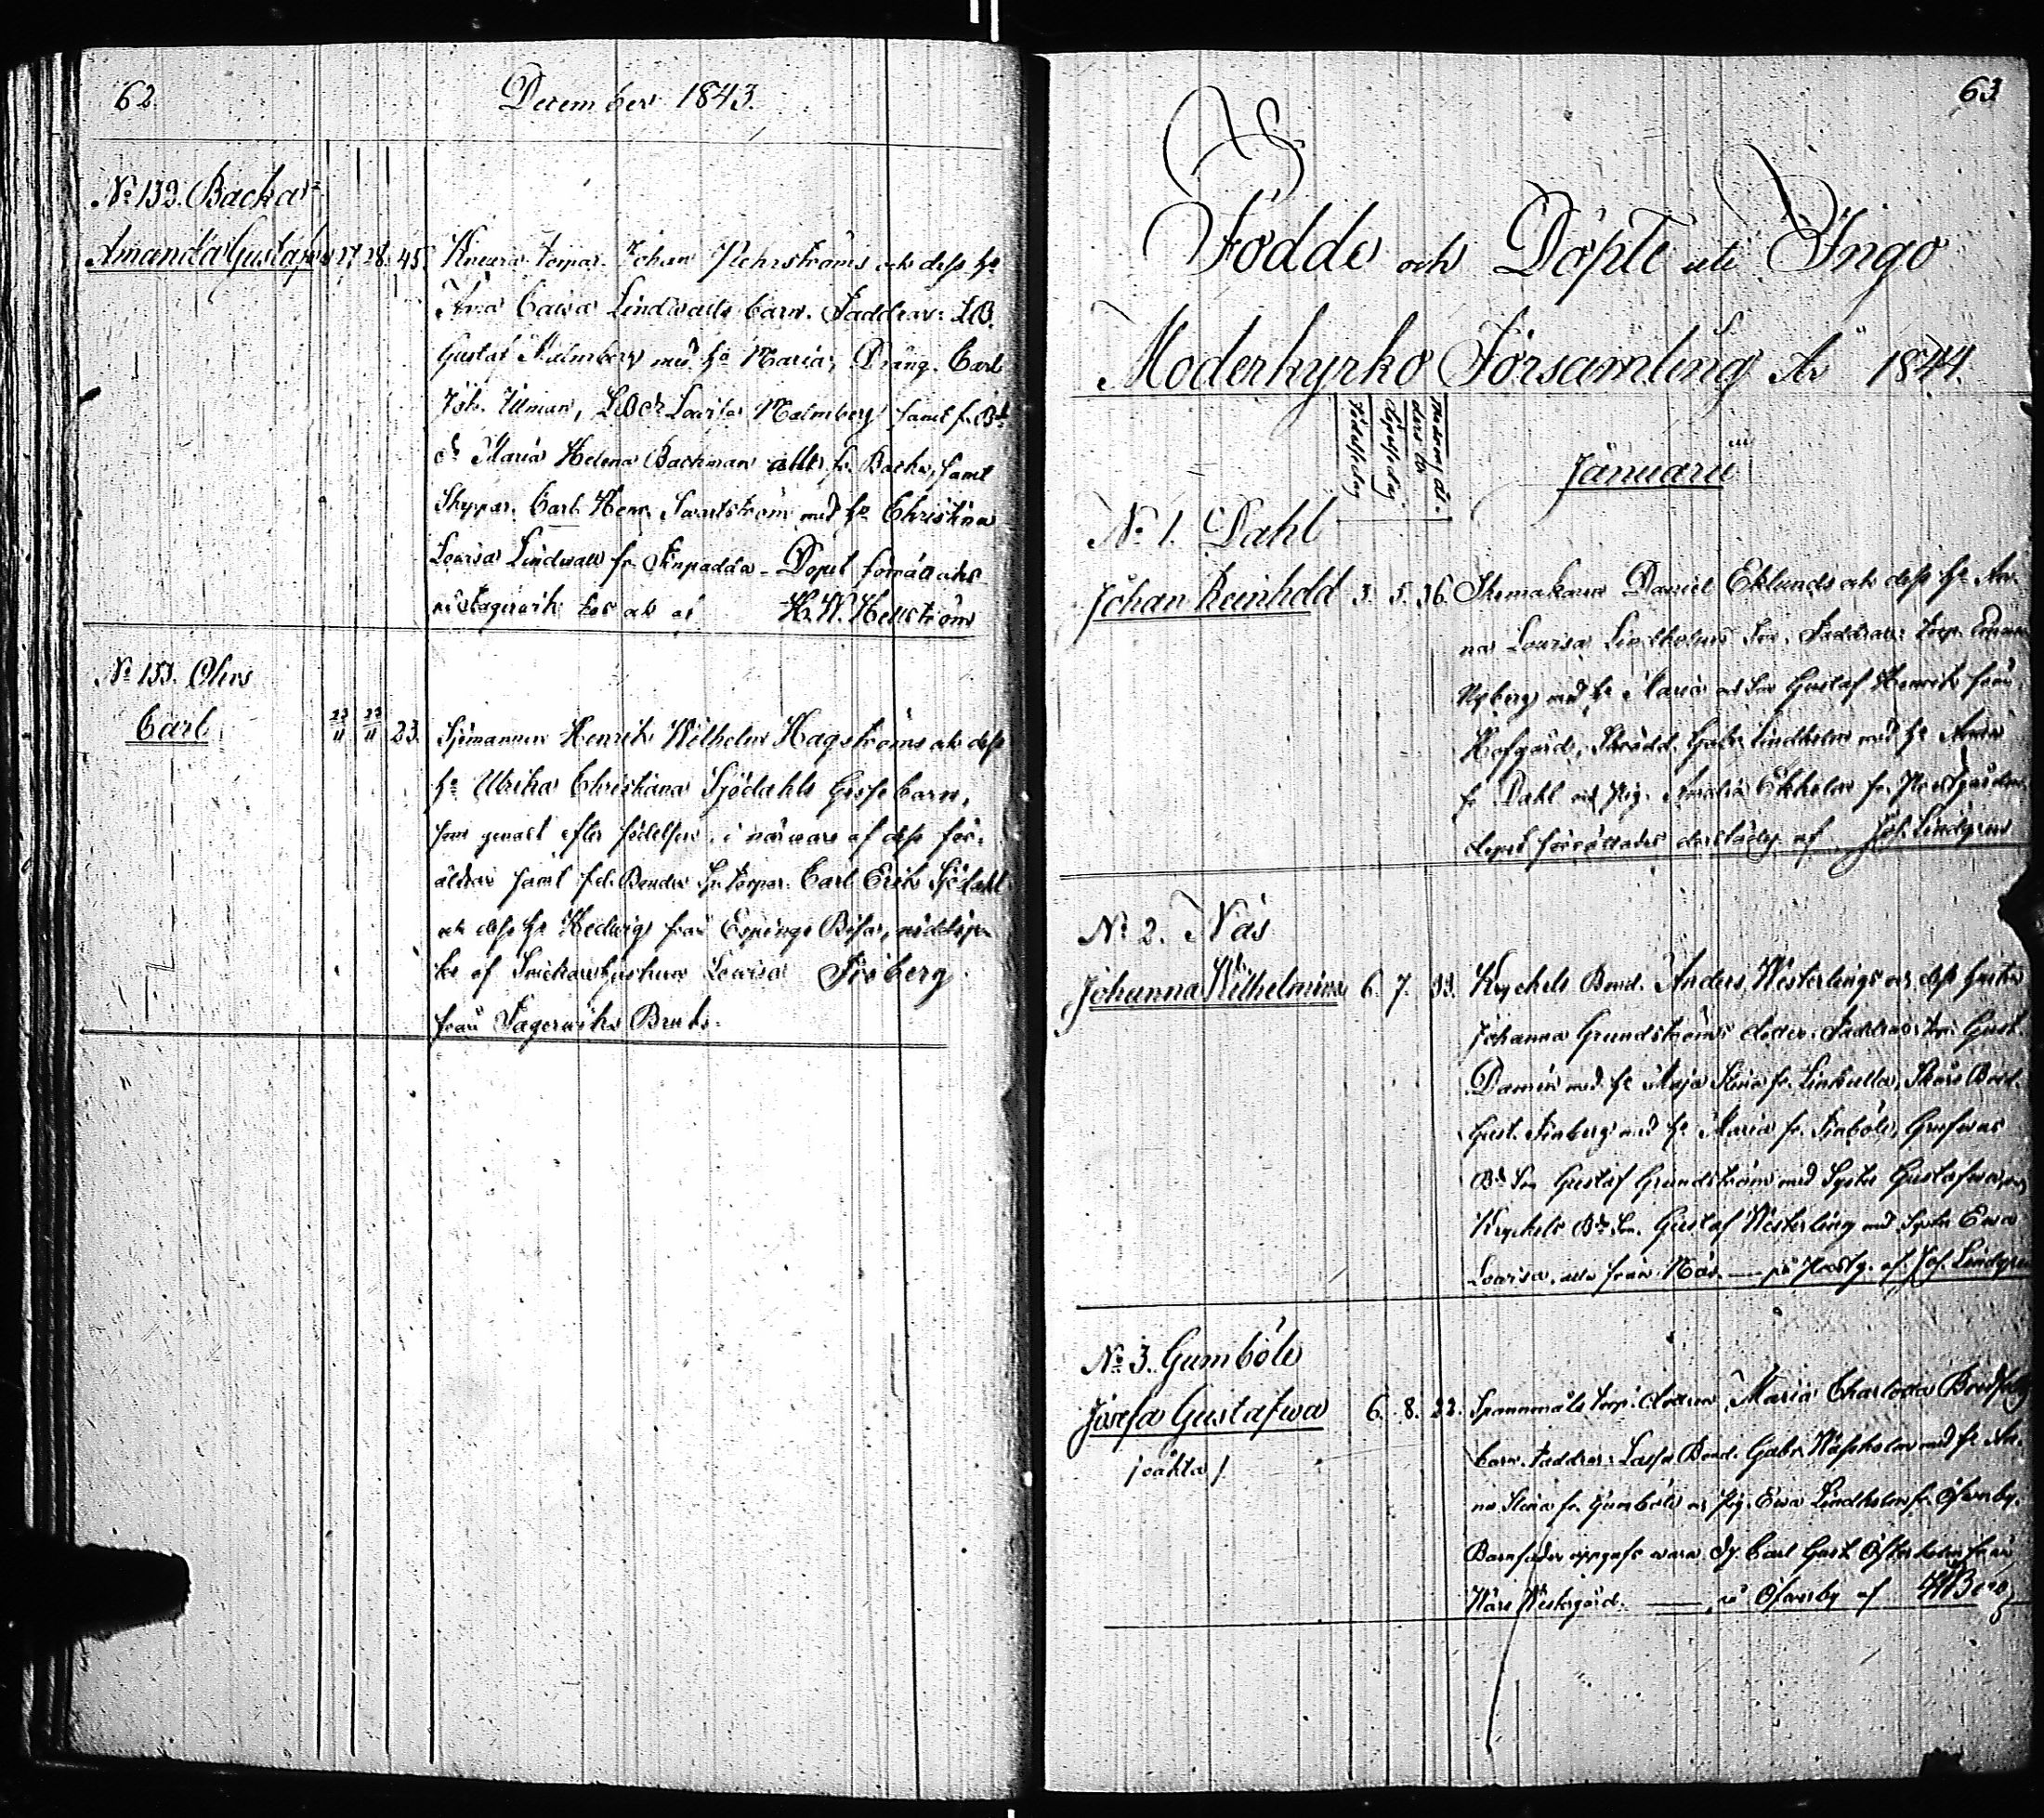 62.
December 1843.
No 132. Backa
Amanda Gustafva 27 28 45. Knuus torpar. Johan Fehrströms och dess hu
Anna Caisa Lindwalls barn. Faddrar: LB.
Gustaf Malmberg med hu Maria, Dräng. Carl
Joh. Ulman, LBdr Lovisa Malmberg samt fr. Bd
dr Maria Helena Backman alla fr. Backa, samt
Skeppar. Carl Henr. Sandström med hu Christina
Lovisa Lindwall fr. Dopet förrättades
af H. W. Hellström
No 133. Ohrs
Carl 23/11 23/11 23. Sjömannen Henrik Wilhelm Hagströms och dess
hu Ulrika Christiana Sjödahls Gosse barn,
som genast efter födelsen i närvaro af dess för-
äldrar samt f.d. Bonden Torpar. Carl Erik Sjödahl
och dess hu Hedwig från Espings nöddöp-
tes af Lovisa Fröberg
från Fagerwiks Bruk.
63
Födde och Döpte uti Ingo
Moderkyrko Församling År 1844.
Födelsedag
Döpelsedag
Modrens ål-
ders år
Januarii
No 1. Dahl
Johan Reinhold 3. 5. 36. Skomakaren Daniel Eklunds och dess hu An-
na Lovisa Lindholms Son. Faddrar: Torp.
Nyberg med hu Maria och Son Gustaf Henrik från
Hofgård, Skrädd. Gabr. Lindholm med hu Anna
fr. Dahl och Pig. Amalia Ekholm fr. Prestgården
dopet förrättades derstädes af Joh. Lindgren
No 2. Näs
Johanna Wilhelmina 6. 7. 33. Krychels Bond. Anders Westerlings och dess hustru
Johanna Grundströms dotter. Faddrar: Gust.
Damén med hu Maja Stina fr. Bond.
Gust. Finberg med hu Maria fr. Finböle,
Bd Son Gustaf Grundström med Syster Gustafva,
Krychels Bd Son Gustaf Westerling med Syster Eva
Lovisa, alla från Näs. — på Prestg. af Joh. Lindgren
No 3. Gumböle
Josefa Gustafwa 6. 8. 22. Spannmåls torp. dottren Maria Charlotta
/oäkta/ barn. Faddrar: Lassa Bond. Gabr. med hu An-
na Stina fr. Gumböle och Pig. Eva Lindholm fr. Ofvanby.
Barnfader uppgafs wara Dg. Carl Gust. Österholm från
Westergård. — på Ofvanby af HBerg